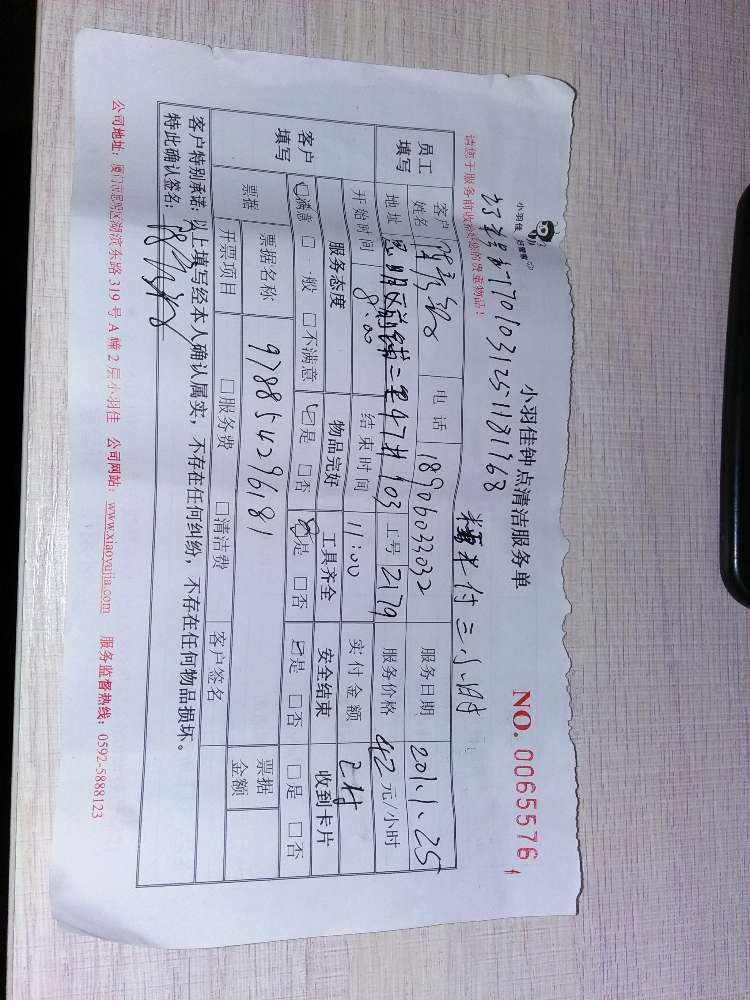 小羽佳 好管家
小羽佳钟点清洁服务单
NO. 0065576
1701031251181768
付三小时
请您于服务前收好您的贵重物品!
员工填写
客户姓名 电话 18906033032 服务日期 201.1.25
地址 思明区 二里47# 903 工号 2179 服务价格 42 元/小时
开始时间 8:00 结束时间 11:00 实付金额 已付
客户填写
服务态度 物品完好 工具齐全 安全结束 收到卡片
☑满意 □一般 □不满意 ☑是 □否 ☑是 □否 ☑是 □否 □是 □否
票据 票据名称 978854296181 票据金额
开票项目 □服务费 □清洁费 客户签名
客户特别承诺:以上填写经本人确认属实,不存在任何纠纷,不存在任何物品损坏。
特此确认签名:
公司地址:厦门市思明区湖滨东路 319 号 A 幢 2 层小羽佳 公司网站:www.xiaoyujia.com 服务监督热线:0592-5888123